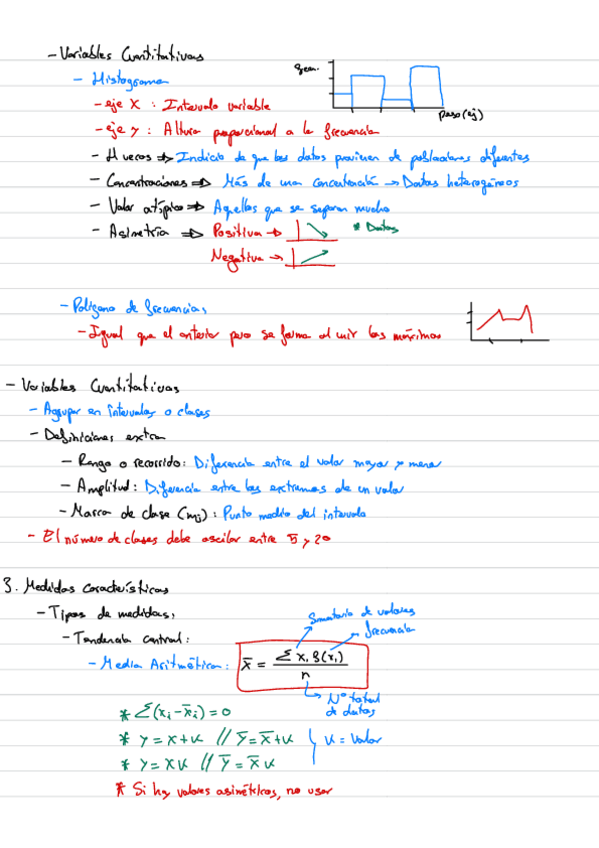 - Variables Cuantitativas
- Histograma
frecu.
peso (ej)
- eje X : Intervalo variable
- eje y : Altura proporcional a la frecuencia
- Huecos ⇒ Indicio de que los datos provienen de poblaciones diferentes
- Concentraciones ⇒ Más de una concentración → Datos heterogéneos
- Valor atípico ⇒ Aquellos que se separan mucho
- Asimetría ⇒ Positiva → * Datos
Negativa →
- Polígono de frecuencias,
- Igual que el anterior pero se forma al unir los máximos
- Variables Cuantitativas
- Agrupar en intervalos o clases
- Definiciones extra
- Rango o recorrido: Diferencia entre el valor mayor y menor
- Amplitud: Diferencia entre los extremos de un valor
- Marca de clase (mj): Punto medio del intervalo
- El número de clases debe oscilar entre 5 y 20
3. Medidas Características
- Tipos de medidas,
Sumatorio de valores
frecuencia
- Tendencia central:
- Media Aritmética: x̄ = Σ xᵢ f(xᵢ) / n
Nº total
de datos
* Σ(xᵢ - x̄ᵢ) = 0
* y = x + k // ȳ = x̄ + k } k = valor
* y = x k // ȳ = x̄ k
* Si hay valores asimétricos, no usar